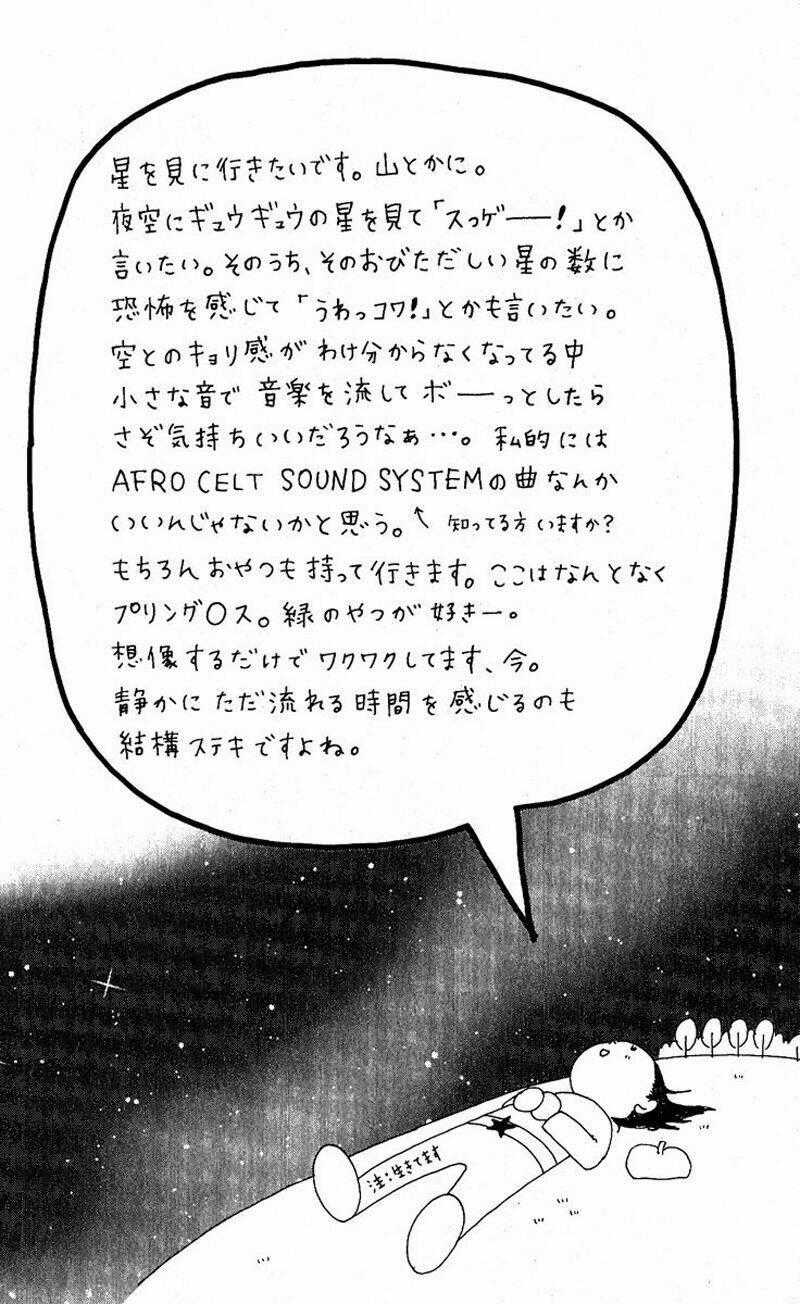 星を見に行きたいです。山とかに。
夜空にギュウギュウの星を見て「スっゲーー！」とか
言いたい。そのうち、そのおびただしい星の数に
恐怖を感じて「うわっコワ！」とかも言いたい。
空とのキョリ感がわけ分からなくなってる中
小さな音で 音楽を流してボーーっとしたら
さぞ気持ちいいだろうなぁ…。私的には
AFRO CELT SOUND SYSTEMの曲なんか
いいんじゃないかと思う。↖ 知ってる方いますか？
もちろんおやつも持って行きます。ここはなんとなく
プリング〇ス。緑のやつが好きー。
想像するだけでワクワクしてます、今。
静かにただ流れる時間を感じるのも
結構ステキですよね。
注：生きてます